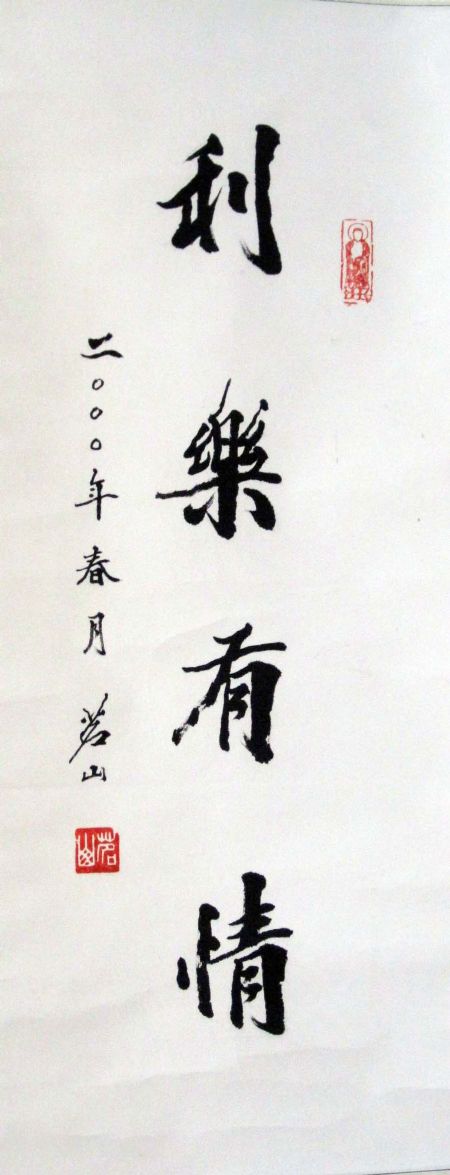 利樂有情
二〇〇〇年春月 茗山
茗山